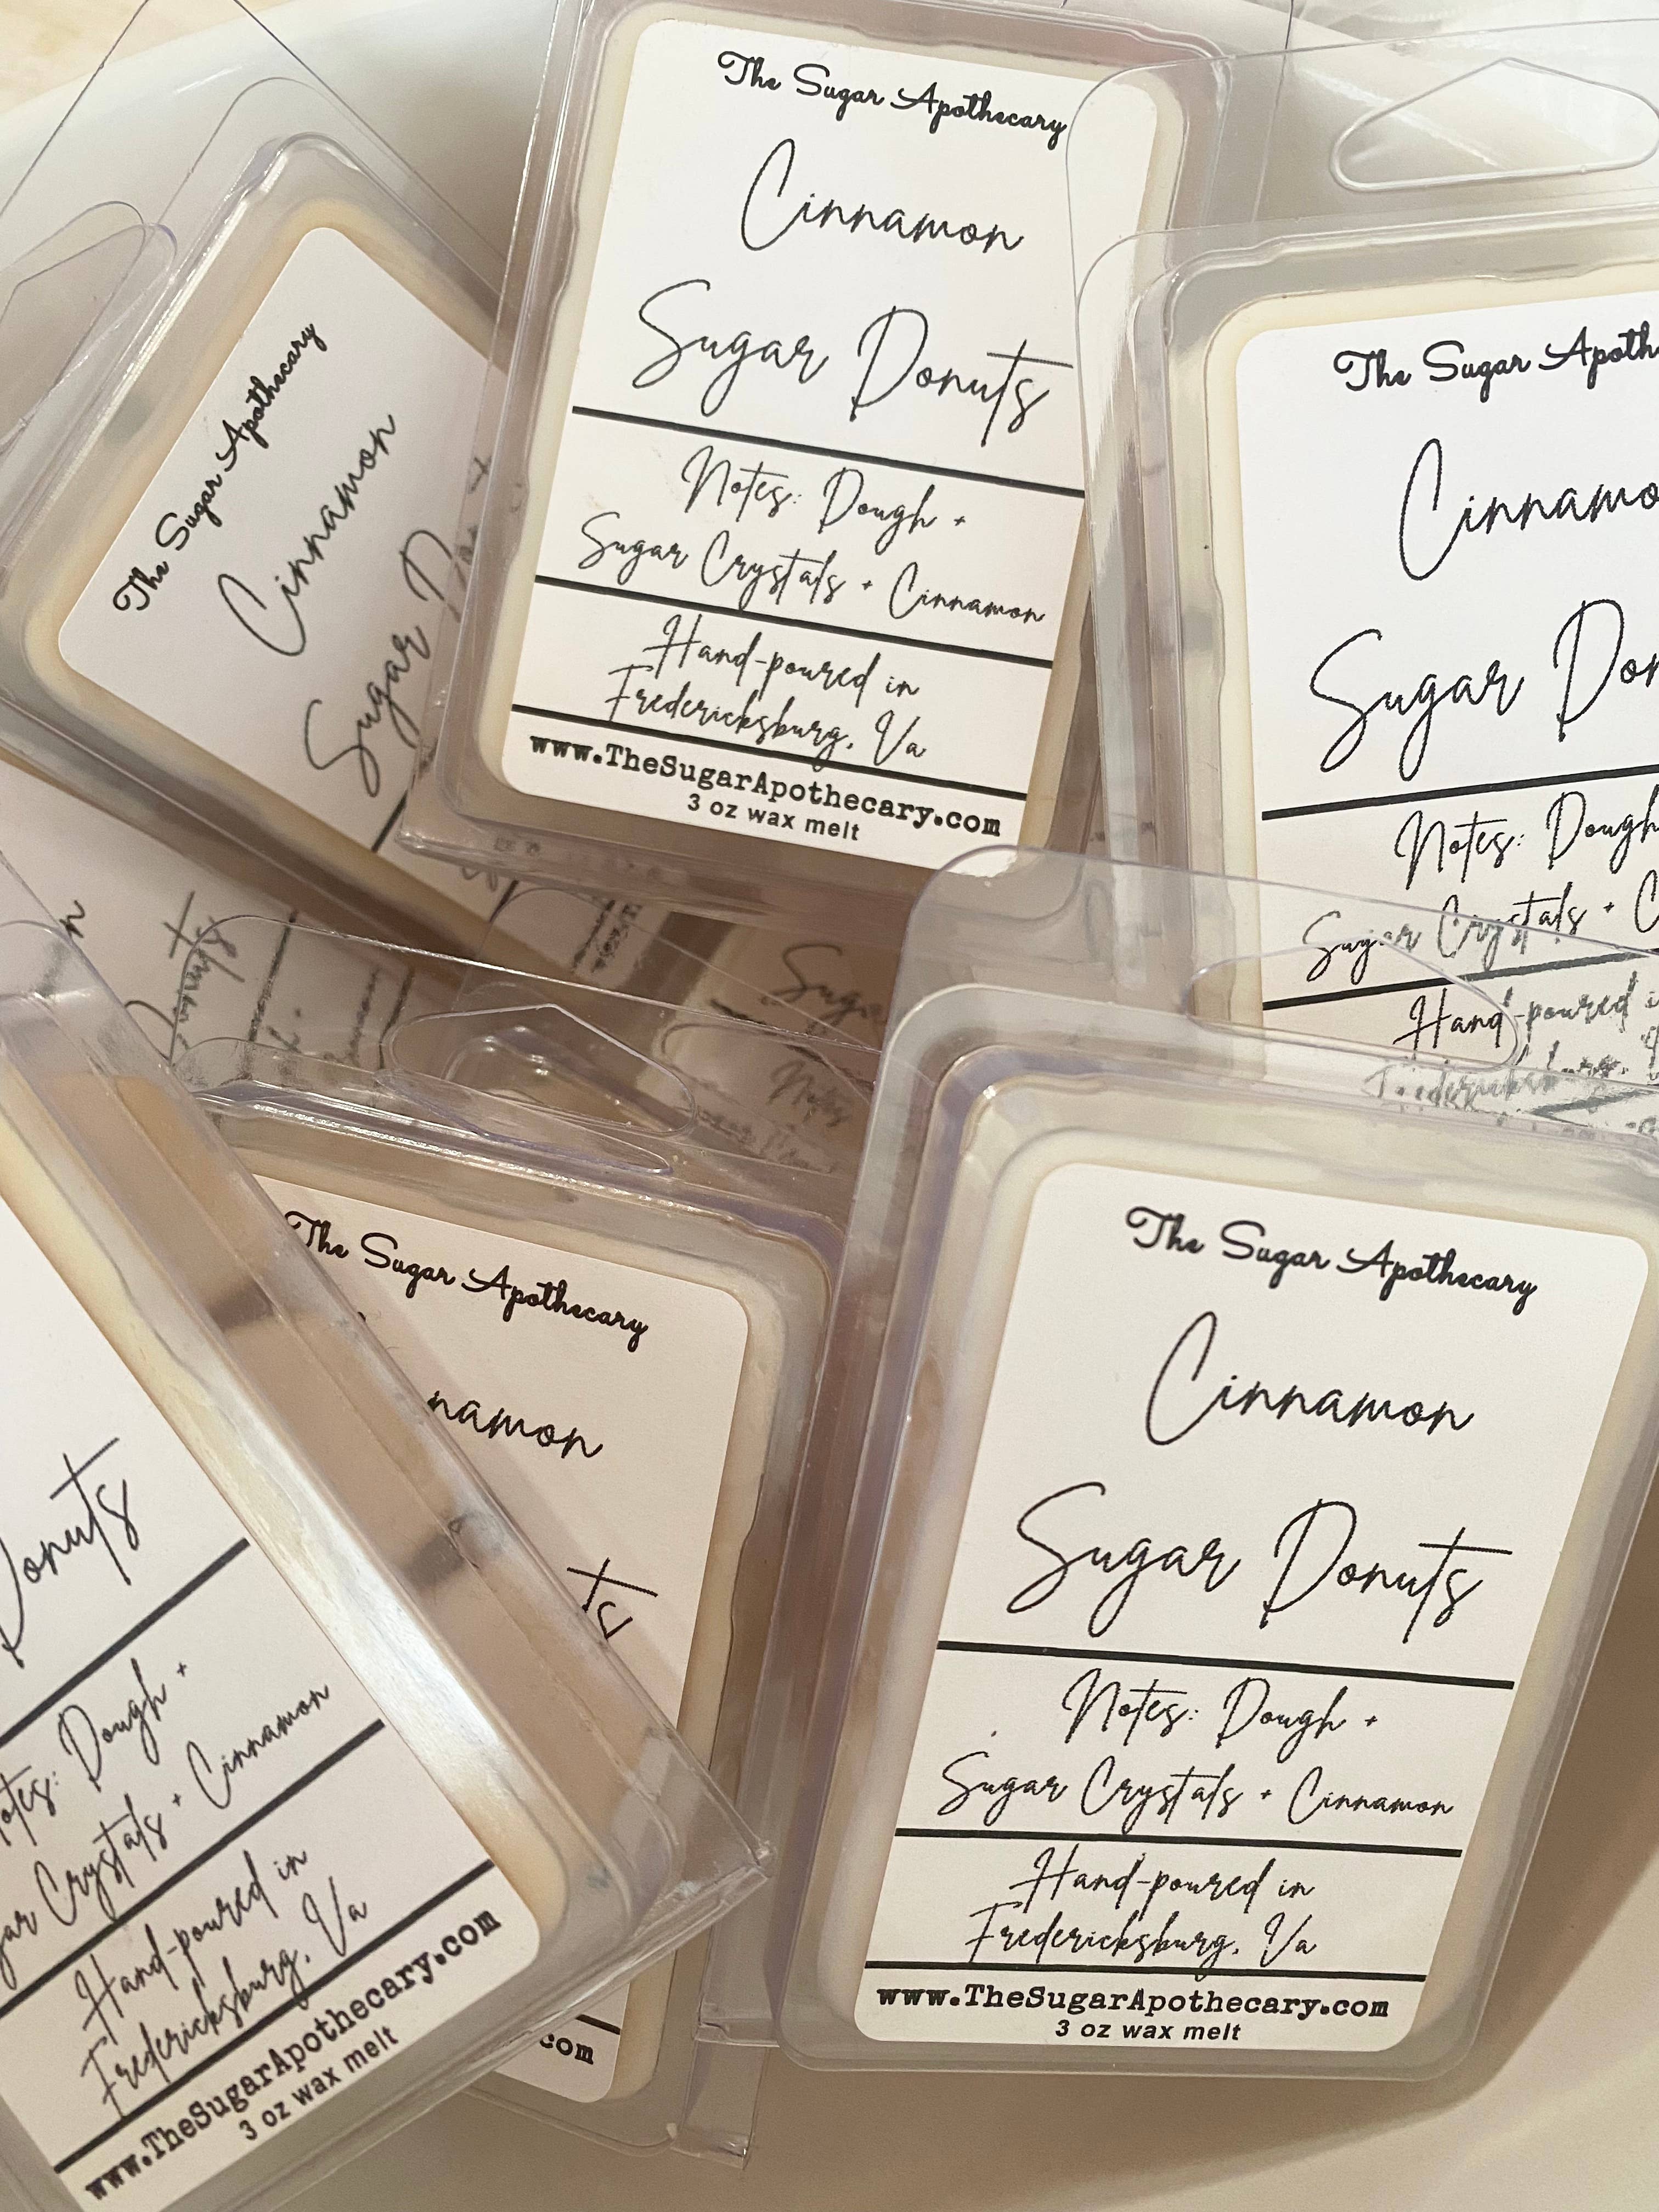 The Sugar Apothecary
Cinnamon
Sugar Donuts
Notes: Dough +
Sugar Crystals + Cinnamon
Hand-poured in
Fredericksburg, Va
www.TheSugarApothecary.com
3 oz wax melt
The Sugar Apothecary
Cinnamon
Sugar
The Sugar Apoth
Cinnamo
Sugar Don
Notes: Dough
Sugar Crystals + C
Hand-poured i
The Sugar Apothecary
namon
ts
com
The Sugar Apothecary
Cinnamon
Sugar Donuts
Notes: Dough +
Sugar Crystals + Cinnamon
Hand-poured in
Fredericksburg, Va
www.TheSugarApothecary.com
3 oz wax melt
Donuts
otes: Dough +
gar Crystals + Cinnamon
Hand-poured in
Fredericksburg, Va
www.TheSugarApothecary.com
3 oz wax melt